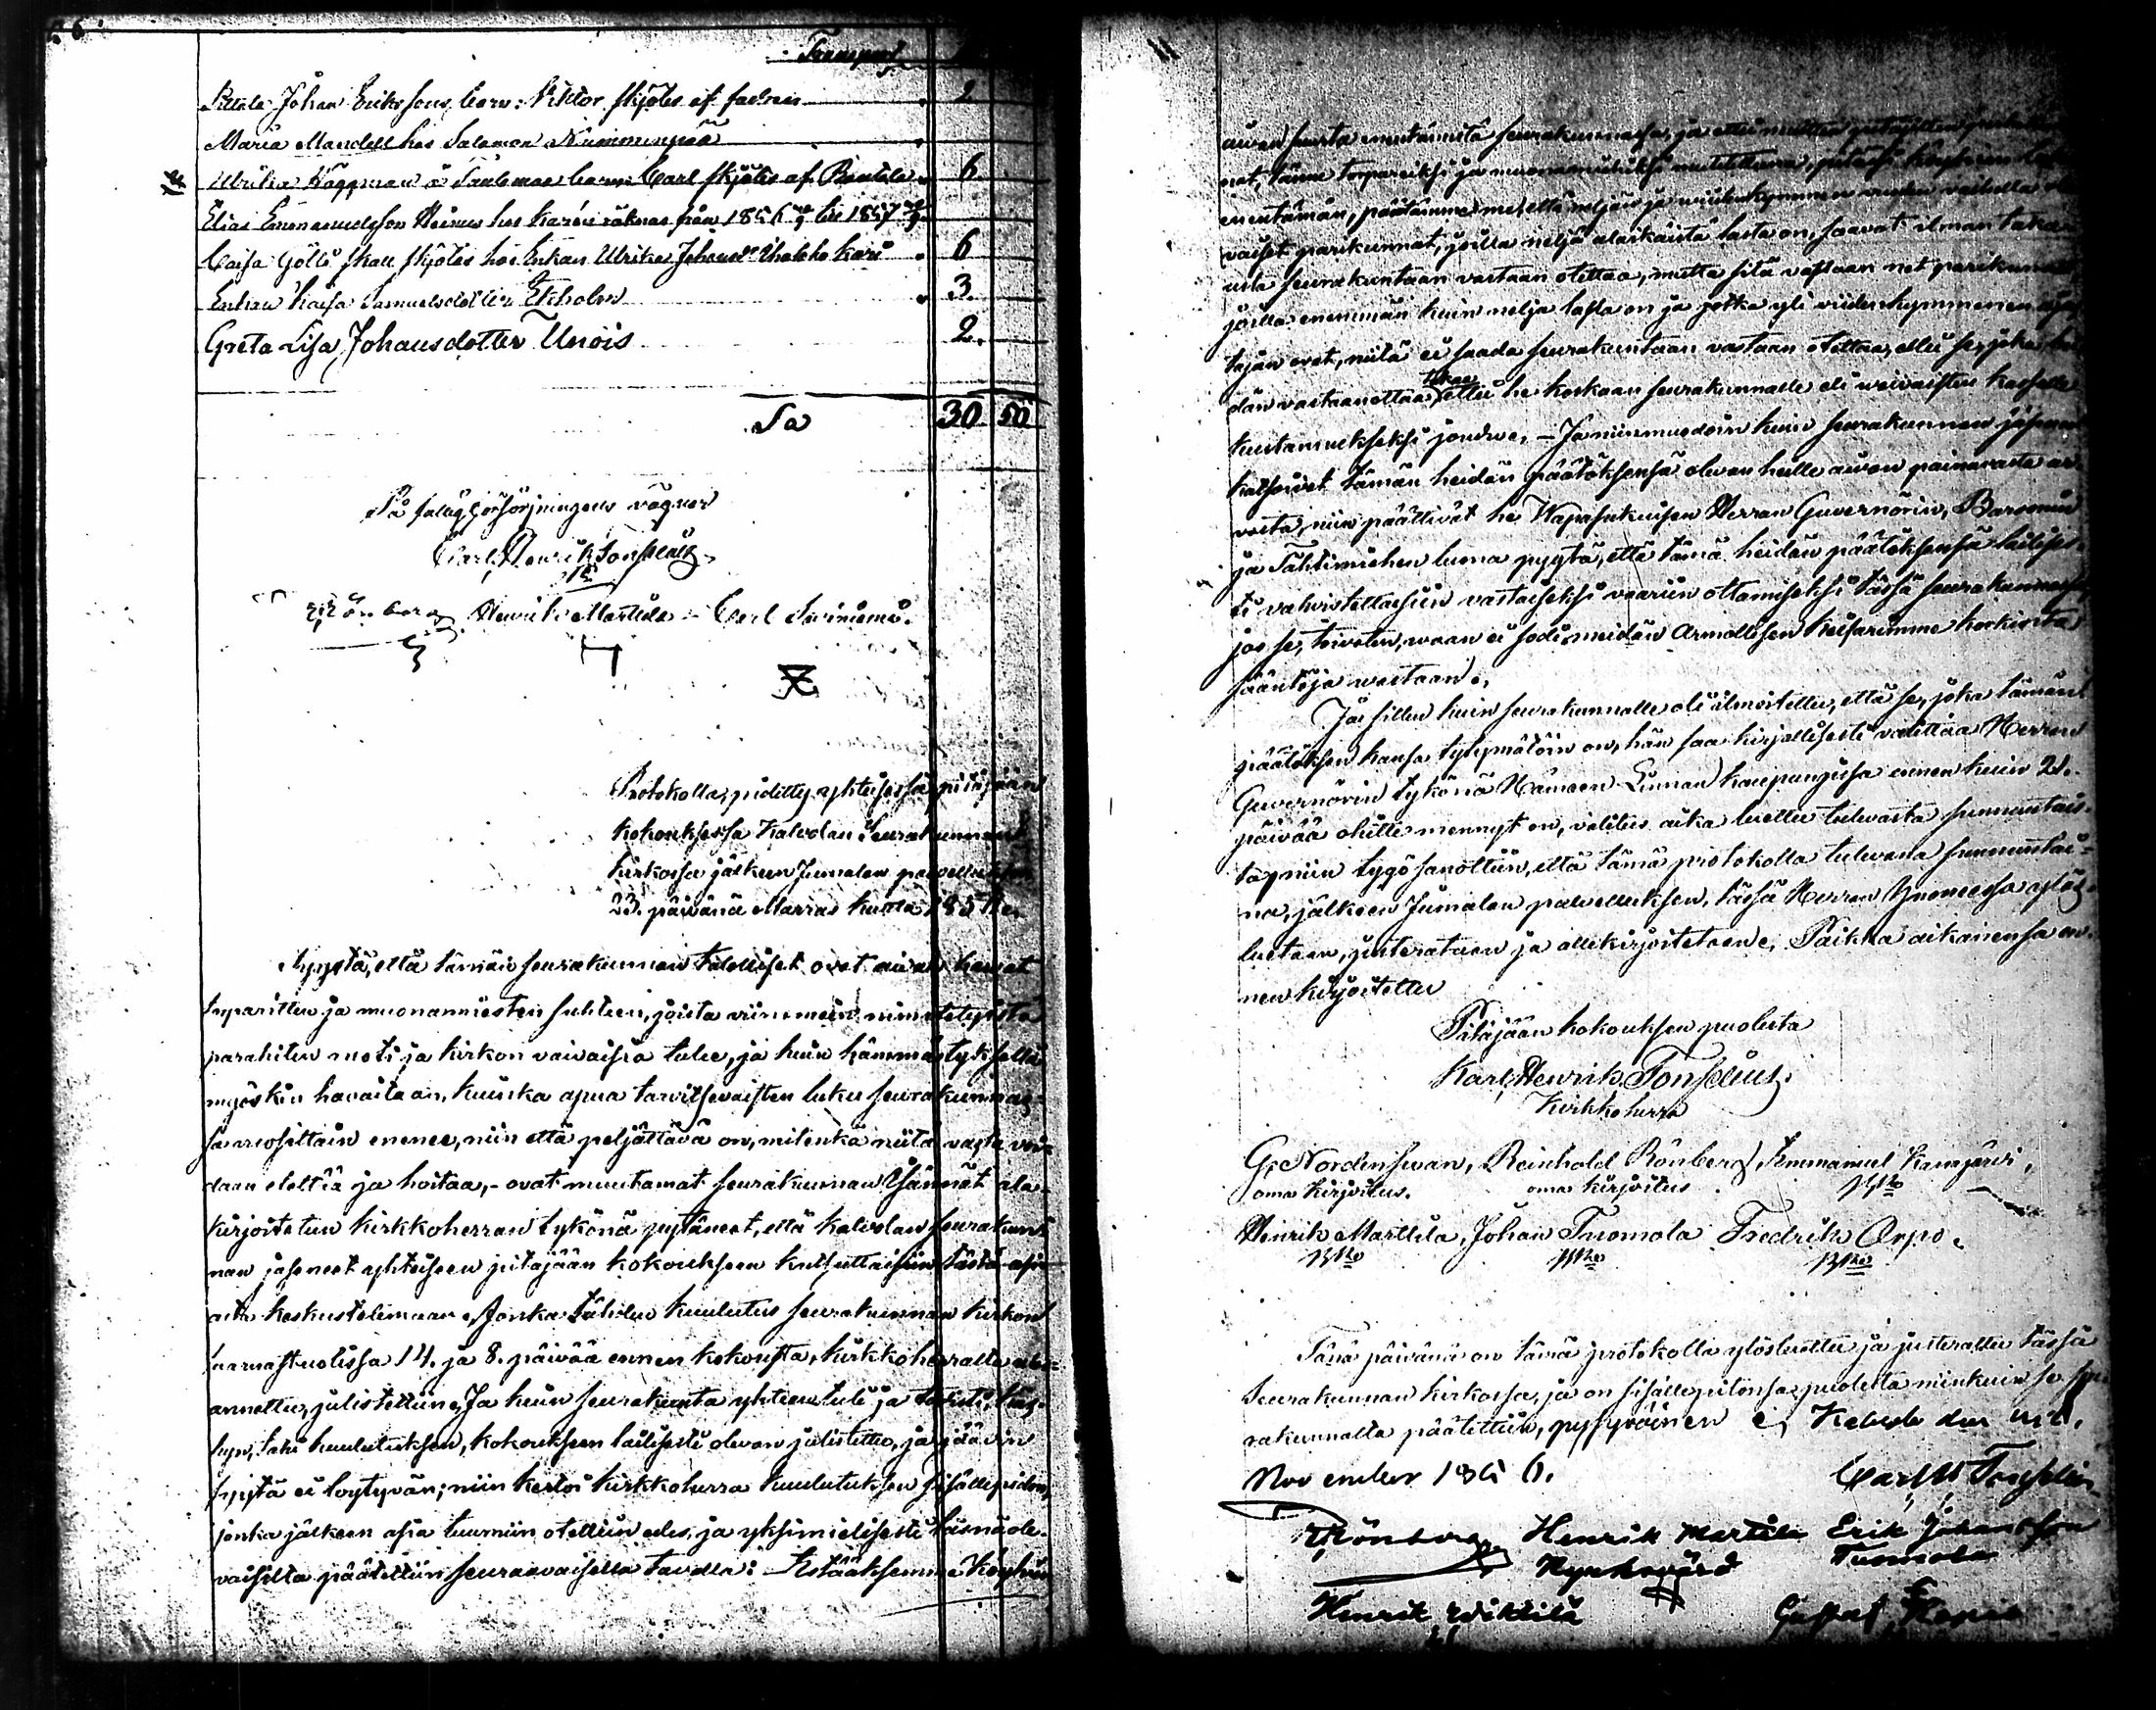 Transport
Pittala Johan Erikssons barn: Viktor skjötes af fadren 2
Maria Mandell hos Salomon Nimmenpää
Ulrika Käggman å Taulamaa barn Carl skjötes af Rantala 6.
Elias Emmanuelsson Heimes hos Karén räknas från 1856 till 1857
Caisa Gölli skall skjötes hos Enkan Ulrika Johansd. Uhalcko Kari 6
Enkan Kaisa Samuelsdotter Ekholm 3.
Greta Lisa Johansdotter Unois 2.
Sa 30 50
På fattigförsörjningens vägnar
Carl Henrik Tonselius
R Rönberg Henrik Marttila Carl Suiniemi.
Protokolla, pidetty yhteisessä pitäjään
kokouksessa Kalvolan Seurakunnan
kirkossa jälkeen Jumalan palvelluksen
23. päivänä Marras kuulla 1856.
Syystä, että tämän seurakunnan talolliset ovat aivan hanat
torparitten ja muonamiesten suhteen, joista viimmein nimitetyistä
parahiten moti ja kirkon vaivaisia tulee, ja kuin hämmästyksellä
myöskin havaitaan, kuinka apua tarvitsevaisten luku seurakunnas-
sa arvosittain enenee, niin että peljättävä on, mitenkä niitä vasta voi-
daan elättää ja hoitaa, - ovat muutamat seurakunnan Isännät ala-
kirjoitetun kirkkoherran tykönä pytäneet, että Kalvolan seurakun-
nan jäsenet yhteiseen pitäjään kokoukseen kutsuttaisiin tästä asi-
asta keskustelemaan. Jonka tähden kuulutus seurakunnan kirkon
saarnastuolissa 14. ja 8. päivää ennen kokousta, kirkkoherralta ulos-
annettu, julistettiin. Ja kuin seurakunta yhteen tuli ja
syn, tahi kuulutuksen, kokouksen laillisesti olevan julistettu, ja jäävin
syytä ei löytyvän; niin kertoi kirkkoherra kuulutuksen sisällepidon,
jonka jälkeen asia tuumiin otettiin edes, ja yksimielisesti läsnäole-
vaisilta päätettiin seuraavaisella tavalla: Estääksemme köyhien
aivan suurta enentämistä seurakunnassa, ja että muitten pitäjitten
nat, tänne torpareiksi ja muonamiehiksi muutettuna, pitäisi köyhien
enentämän, päätämme me, että neljän ja viidenkymmen vuoden vaiheella
vaiset parikunnat, joilla neljä alaikäistä lasta on, saavat ilman taka-
usta seurakuntaan vastaan otettaa, mutta sitä vastaan net parikunnat,
joilla enemmän kuin neljä lasta on ja jotka yli viidenkymmenen ajas-
tajan ovat, niitä ei saada seurakuntaan vastaan otettaa, ellei se, joka hei-
dän vastaanottaa, takaa ettei he koskaan seurakunnalle eli vaivaisten kassalle
kustannukseksi joudu. - Ja niinmuodoin kuin seurakunnan jäsenet
katsoivat tämän heidän päätöksensä olevan heille aivan painavasta ar-
vosta, niin päättivät he, Wapasukuisen Herran Guvernörin, Baroonin
ja Tähtimiehen luona pyytä, että tämä heidän päätöksensä laillises-
ti vahvistettaisiin vastaiseksi vaariin ottamiseksi tässä seurakunnassa,
jos se, toivoten, waan ei sodi meidän Armollisen Keisarimme korkioita
sääntöjä wastaan.
Jos sitten kuin seurakunnalle oli ilmoitettu, että se, joka tämän
päätöksen kansa tytymätöin on, hän saa kirjallisesti valittaa Herran
Guvernörin tykönä Hämeen Linnan kaupungissa ennen kuin 21.
päivää ohitte mennyt on, valitus aika luettu tulevasta sunnuntais-
ta, niin tygö sanottiin, että tämä protokolla tulevana sunnuntai-
na, jälkeen Jumalan palvelluksen, tässä Herran huoneessa ylös-
luetaan, justerataan ja allekirjoitetaan. Paikka aikanensa en-
nen kirjoitettu
Pitäjään kokouksen puolesta
Karl Henrik Tonselius.
Kirkkoherra
G. Nordenswan, Reinhold Rönberg, Emmanuel Kanajärvi,
oma kirjoitus. oma kirjoitus
Henrik Marttila, Johan Tuomola Fredrik Orpo.
Tänä päivänä on tämä protokolla ylösluettu ja justerattu tässä
Seurakunnan kirkossa, ja on sisällepitonsa puolesta niinkuin se seu-
rakunnalta päätettiin, pysyväinen. Kalvola den
November 1856.
Carl H Tonselius
R Rönberg Henrik Martila Erik Johansson
Kyrkovärd Tuomola
Henrik Wikkilä Gustaf